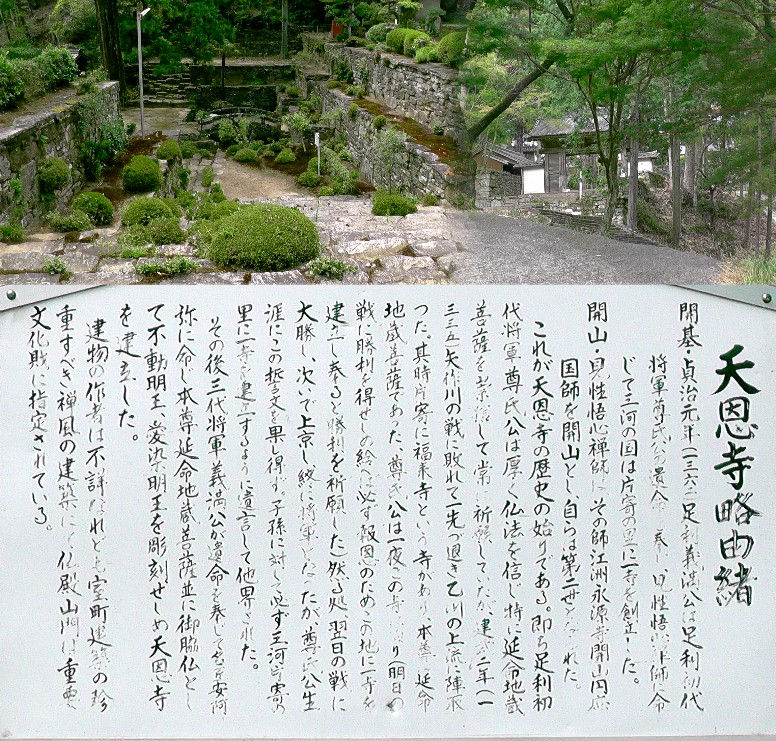 天恩寺略由緒
開基・貞治元年(一三六二)足利義満公は足利初代
将軍尊氏公の遺命を奉じ見性悟心禅師に命
じて三河の国は片寄の里に一寺を創立した。
開山・見性悟心禅師は、その師江洲永源寺開山円応
国師を開山とし、自らは第二世となられた。
これが天恩寺の歴史の始りである。即ち足利初
代将軍尊氏公は厚く仏法を信じ、特に延命地蔵
菩薩を崇信して常に祈願していたが、建武二年(一
三三五)矢作川の戦に敗れて一先づ退き乙川の上流に陣取
った。其時片寄に福来寺という寺があり、本尊は延命
地蔵菩薩であった。尊氏公は一夜この寺に (明日の
戦に勝利を得せしめ給へば必ず報恩のためこの地に一寺を
建立し奉ると勝利を祈願した)然る処翌日の戦に
大勝し、次いで上京し終に将軍となったが、尊氏公生
涯にこの誓文を果し得ず。子孫に対して必ず三河片寄の
里に一寺を建立するように遺言して他界された。
その後三代将軍義満公が遺命を奉じて
弥に命じ本尊延命地蔵菩薩並に御脇仏とし
て不動明王、愛染明王を彫刻せしめ天恩寺
を建立した。
建物の作者は不詳なれども室町建築の珍
重すべき禅風の建築にて仏殿山門は重要
文化財に指定されている。